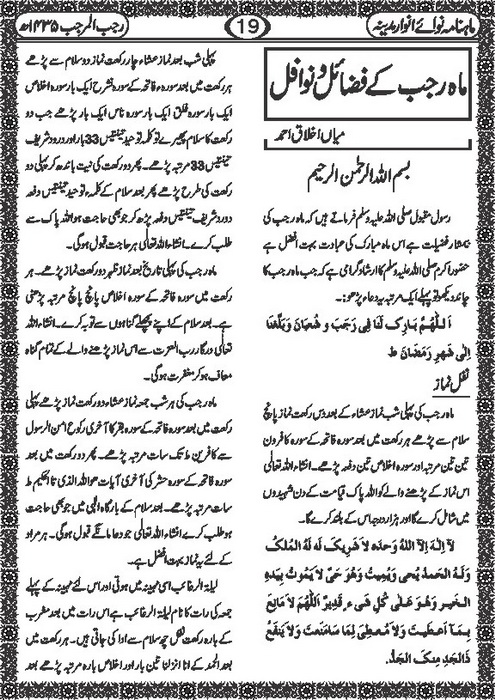 ماہنامہ نوائے انوار مدینہ
19
رجب المرجب ۱۴۳۵ھ
ماہ رجب کے فضائل و نوافل
میاں اخلاق احمد
بسم اللہ الرحمٰن الرحیم
رسول مقبول صلی اللہ علیہ وسلم فرماتے ہیں کہ ماہ رجب کی
بیشمار فضیلت ہے اس ماہ مبارک کی عبادت بہت افضل ہے
حضور اکرم صلی اللہ علیہ وسلم کا ارشاد گرامی ہے کہ جب ماہ رجب کا
چاند دیکھو تو پہلے ایک مرتبہ یہ دعاء پڑھو:۔
اَللّٰهُمَّ بَارِكْ لَنَا فِى رَجَبَ وَ شَعبَانَ وَبَلِّغنَا
اِلٰى شَهرِ رَمَضَانَ ط
نفل نماز
ماہ رجب کی پہلی شب نماز عشاء کے بعد دس رکعت نماز پانچ
سلام سے پڑھے ہر رکعت میں بعد سورہ فاتحہ کے سورہ کافرون
تین تین مرتبہ اور سورہ اخلاص تین دفعہ پڑھے۔ انشاء اللہ تعالٰی
اس نماز کے پڑھنے والے کو اللہ پاک قیامت کے دن شہیدوں
میں شامل کرے گا اور ہزار درجہ اس کے بلند کرے گا۔
لَآ اِلٰهَ اِلَّا اللهُ وَحدَه لَا شَرِيكَ لَه لَهُ المُلكُ
وَلَهُ الحَمدُ يُحىٖ وَيُمِيتُ وَهُوَ حَىٌّ لَا يَمُوتُ بِيَدِهِ
الخَيرُ وَهُوَ عَلٰى كُلِّ شَىءٍ قَدِيرٌ اَللّٰهُمَّ لَا مَانِعَ
لِمَا اَعطَيتَ وَلَا مُعطِىَ لِمَا مَنَعتَ وَلَا يَنفَعُ
ذَالجَدِّ مِنكَ الجَدُّ۔
پہلی شب بعد نماز عشاء چار رکعت نماز دو سلام سے پڑھے
ہر رکعت میں بعد سورہ فاتحہ کے سورہ نشرح ایک بار سورہ اخلاص
ایک بار سورہ فلق ایک بار سورہ ناس ایک بار پڑھے جب دو
رکعت کا سلام پھیرے تو کلمہ توحید تینتیس 33 بار اور درود شریف
تینتیس 33 مرتبہ پڑھے۔ پھر دو رکعت کی نیت باندھ کر پہلی دو
رکعت کی طرح پڑھے پھر بعد سلام کے کلمہء توحید تینتیس دفعہ
درود شریف تینتیس دفعہ پڑھ کر جو بھی حاجت ہو اللہ پاک سے
طلب کرے۔ انشاء اللہ تعالٰی ہر حاجت قبول ہوگی۔
ماہ رجب کی پہلی تاریخ بعد نماز ظہر دو رکعت نماز پڑھے۔ ہر
رکعت میں سورہ فاتحہ کے سورہ اخلاص پانچ پانچ مرتبہ پڑھنی
ہے۔ بعد سلام کے اپنے پچھلے گناہوں سے توبہ کرے۔ انشاء اللہ
تعالٰی درگاہ رب العزت سے اس نماز پڑھنے والے کے تمام گناہ
معاف ہو کر مغفرت ہوگی۔
ماہ رجب کی ہر شب جمعہ نماز عشاء دو رکعت نماز پڑھے پہلی
رکعت میں بعد سورہ فاتحہ کے سورہ بقر کا آخری رکوع امن الرسول
سے کافرین ط تک سات مرتبہ پڑھے۔ پھر دو رکعت میں بعد
سورہ فاتحہ کے سورہ حشر کی آخری آیات ھواللہ الذی تا الحکیم ط
سات مرتبہ پڑھے۔ بعد سلام کے بارگاہ الٰہی میں جو بھی حاجت
ہو طلب کرے انشاء اللہ تعالٰی جو دعا مانگے قبول ہوگی۔ ہر مراد
کے لئے یہ نماز بہت افضل ہے۔
لیلۃ الرغائب اسی مہینہ میں ہوتی اور اس لئے مہینہ کے پہلے
جمعہ کی رات کا نام لیلۃ الرغائب ہے اس رات میں بعد مغرب
کے بارہ رکعت نفل چھ سلام سے ادا کی جاتی ہیں۔ ہر رکعت میں
بعد الحمد کے انا انزلنا تین بار اور اخلاص بارہ مرتبہ پڑھے بعد